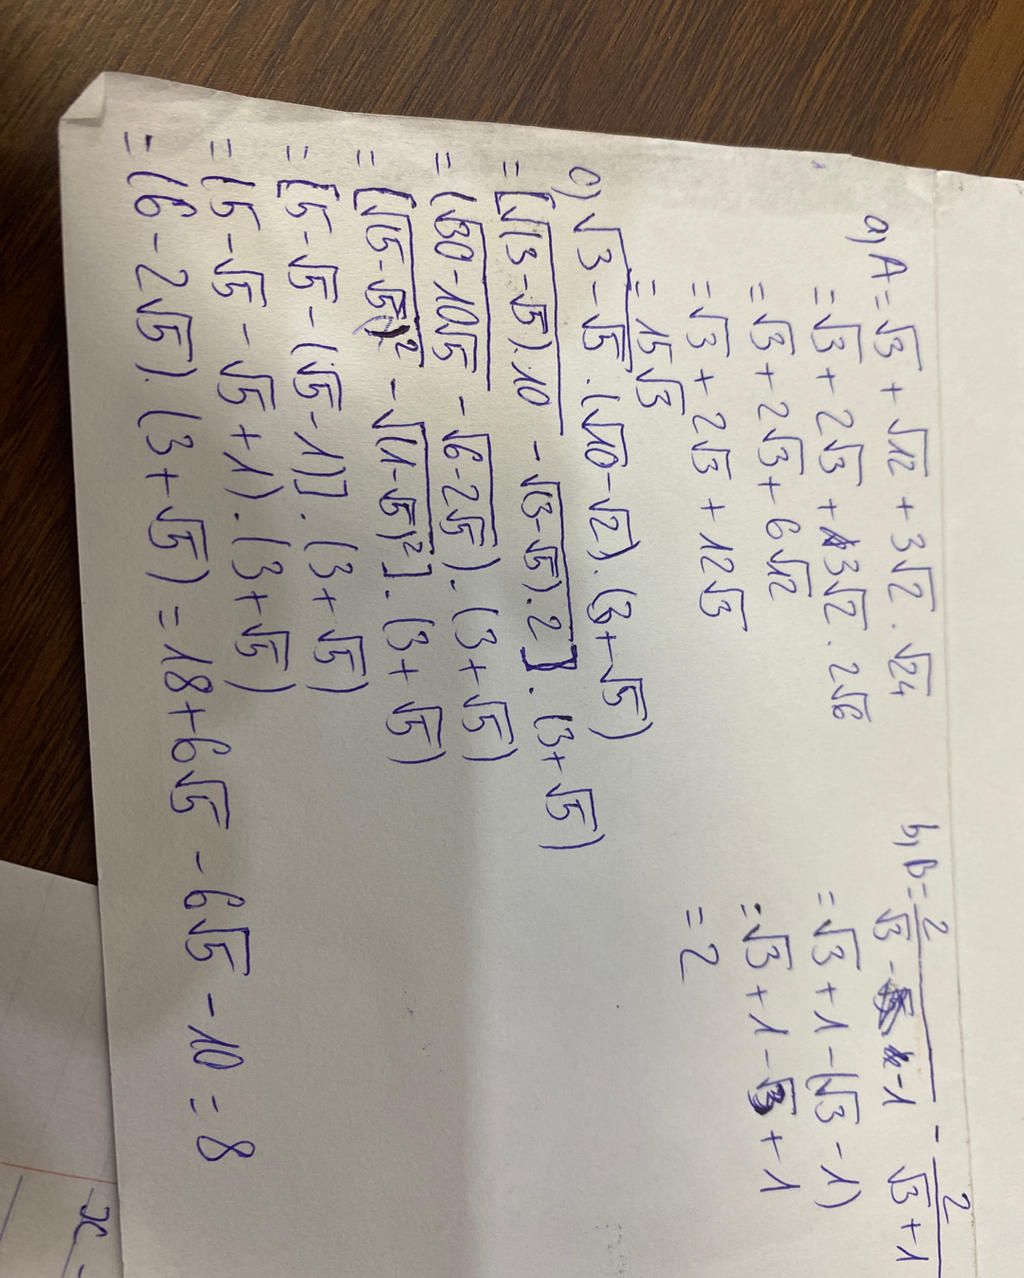 a) A = √3 + √12 + 3√2 . √24
= √3 + 2√3 + 3√2 . 2√6
= √3 + 2√3 + 6√12
= √3 + 2√3 + 12√3
= 15√3
b) B = 2/(√3 - 1) - 2/(√3 + 1)
= √3 + 1 - (√3 - 1)
= √3 + 1 - √3 + 1
= 2
c) √(3 - √5) . (√10 - √2) . (3 + √5)
= [√((3 - √5) . 10) - √((3 - √5) . 2)] . (3 + √5)
= (√(30 - 10√5) - √(6 - 2√5)) . (3 + √5)
= [√(5 - √5)² - √(1 - √5)²] . (3 + √5)
= [5 - √5 - (√5 - 1)] . (3 + √5)
= (5 - √5 - √5 + 1) . (3 + √5)
= (6 - 2√5) . (3 + √5) = 18 + 6√5 - 6√5 - 10 = 8
x -